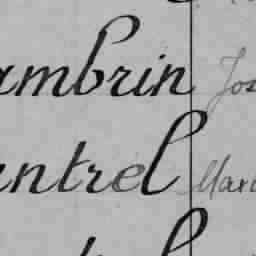 ambrin Jos
antrel Mart